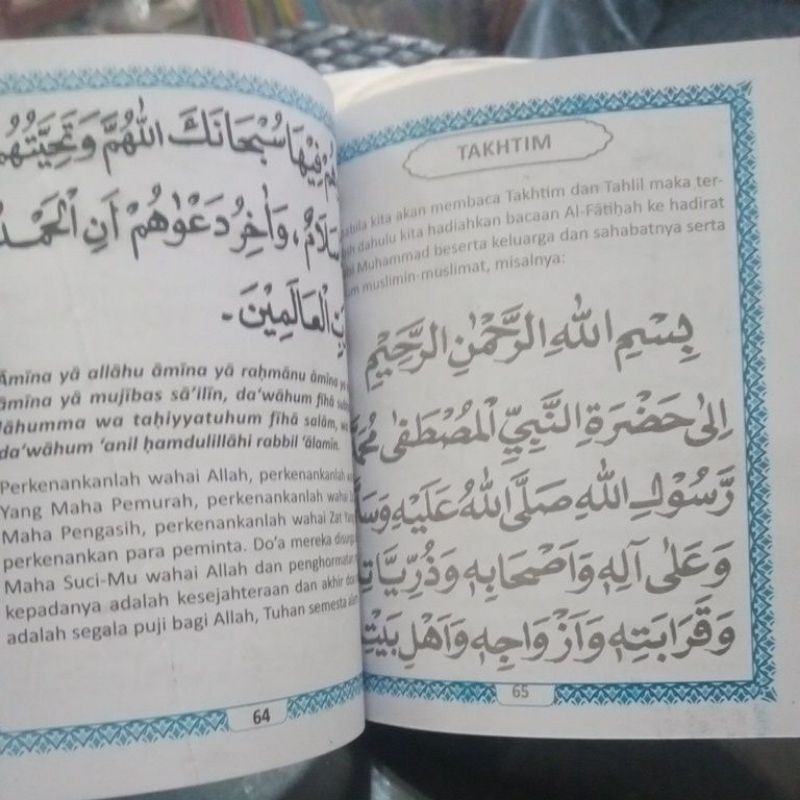 فِيْهَا سُبْحَانَكَ اللّٰهُمَّ وَتَحِيَّتُهُمْ
سَلَامٌ، وَاٰخِرُ دَعْوٰىهُمْ اَنِ الْحَمْدُ
الْعَالَمِيْنَ.
Āmīna yā allāhu āmīna yā raḥmānu āmīna
āmīna yā mujības sā'ilīn, da'wāhum fīhā
lāhumma wa taḥiyyatuhum fīhā salām,
da'wāhum 'anil ḥamdulillāhi rabbil 'ālamīn.
Perkenankanlah wahai Allah, perkenankanlah
Yang Maha Pemurah, perkenankanlah wahai
Maha Pengasih, perkenankanlah wahai Zat Yang
perkenankan para peminta. Do'a mereka
Maha Suci-Mu wahai Allah dan penghormatan
kepadanya adalah kesejahteraan dan akhir
adalah segala puji bagi Allah, Tuhan semesta
64
TAKHTIM
kita akan membaca Takhtim dan Tahlil maka ter-
dahulu kita hadiahkan bacaan Al-Fātiḥah ke hadirat
Muhammad beserta keluarga dan sahabatnya serta
muslimin-muslimat, misalnya:
بِسْمِ اللّٰهِ الرَّحْمٰنِ الرَّحِيْمِ
اِلٰى حَضْرَةِ النَّبِيِّ الْمُصْطَفٰى
رَسُوْلِ اللّٰهِ صَلَّى اللّٰهُ عَلَيْهِ
وَعَلٰى اٰلِهٖ وَاَصْحَابِهٖ
وَقَرَابَتِهٖ وَاَزْوَاجِهٖ وَاَهْلِ
65